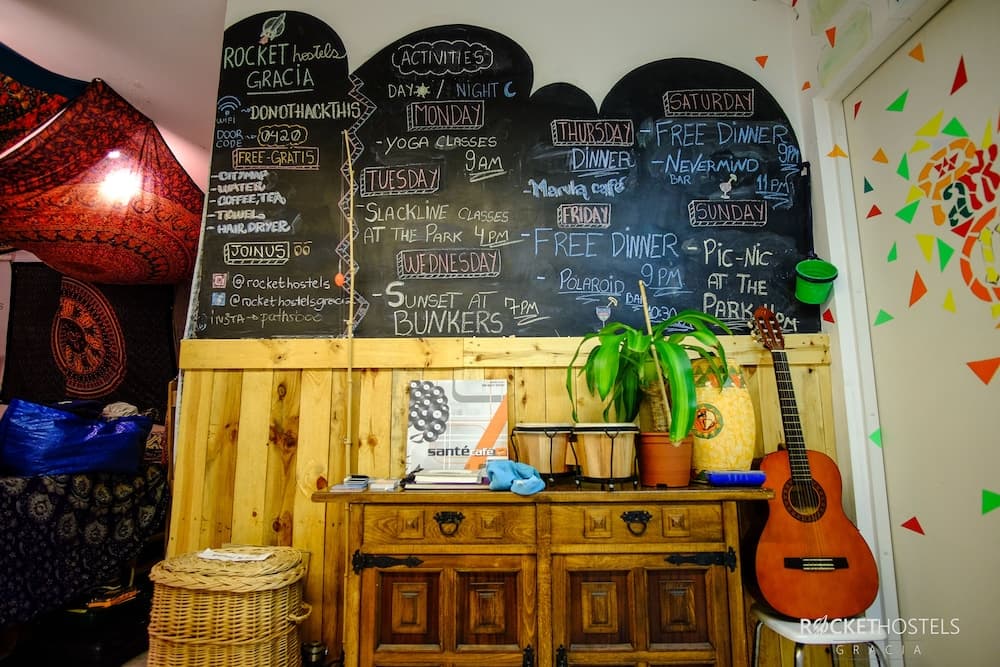 ROCKET hostels
GRACIA
WIFI
~DONOTHACKTHIS
DOOR
CODE
~0420
FREE-GRATIS
-CITYMAP
-WATER
-COFFEE, TEA
-TOWEL
-HAIRDRYER
JOIN US
@rockethostels
@rockethostelsgracia
INSTA
ACTIVITIES
DAY / NIGHT
MONDAY
-YOGA CLASSES
9AM
TUESDAY
SLACKLINE CLASSES
AT THE PARK 4PM
WEDNESDAY
-SUNSET AT
BUNKERS 7PM
THURSDAY
DINNER
Marula café
FRIDAY
-FREE DINNER
9PM
-POLAROID BAR
SATURDAY
-FREE DINNER
9PM
-NEVERMIND
BAR
11PM
SUNDAY
-PIC-NIC
AT THE
PARK
santé café
ROCKETHOSTELS
GRACIA